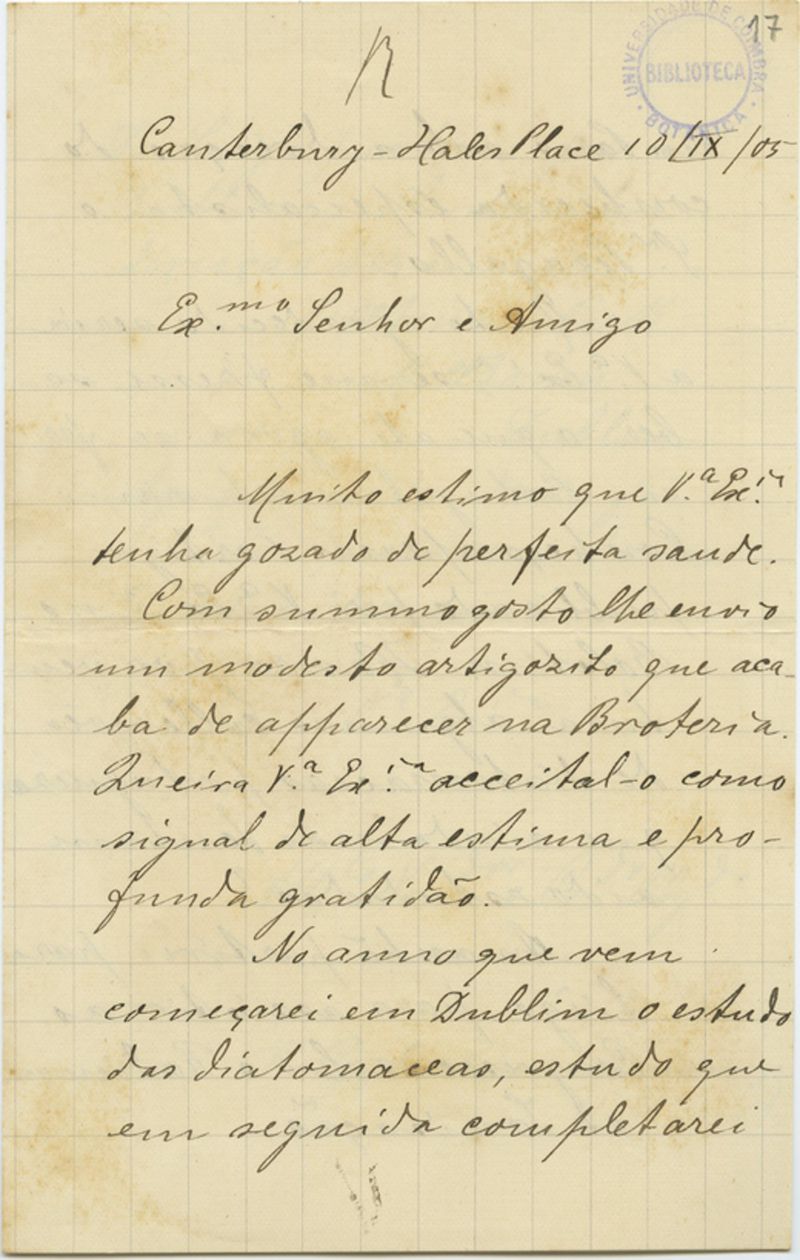 17
UNIVERSIDADE DE COIMBRA
BIBLIOTECA
BOTANICA
R
Canterbury - Hales Place 10/IX/05
Ex.mo Senhor e Amigo
Muito estimo que V.a Ex.ia
tenha gozado de perfeita saude.
Com summo gosto lhe envio
um modesto artigozito que aca-
ba de apparecer na Broteria.
Queira V.a Ex.ia acceital-o como
signal de alta estima e pro-
funda gratidão.
No anno que vem
começarei em Dublim o estudo
das diatomaceas, estudo que
em seguida completarei